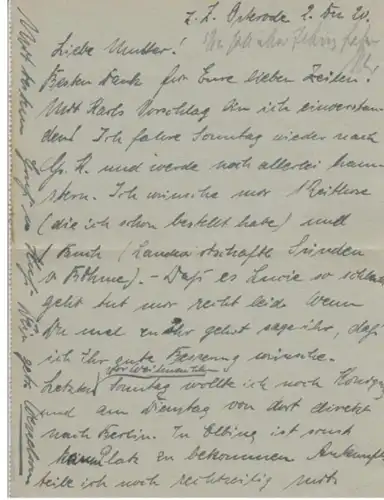 z. Z. Osterode 2. Dez 20.
Liebe Mutter!
Besten Dank für Eure lieben Zeilen.
Mit Karls Vorschlag bin ich einverstan
den! Ich fahre Sonntag wieder nach
Gr. K. und werde noch allerlei ham
stern. Ich wünsche mir 1 Reithose
(die ich schon bestellt habe) und
1 Buch (Landwirtschafts Sünden
v Böhme). - Daß es Lucie so schlecht
geht tut mir recht leid. Wenn
Du mal zu ihr gehst sage ihr, daß
ich Ihr gute Besserung wünsche.
Letzten Sonntag wollte ich noch Königsg
vor Weihnachten
und am Dienstag von dort direkt
nach Berlin. In Elbing ist sonst
kaum Platz zu bekommen Ankunft
teile ich noch rechtzeitig mit.
Mit bestem Gruß u Kuß Dein getr.